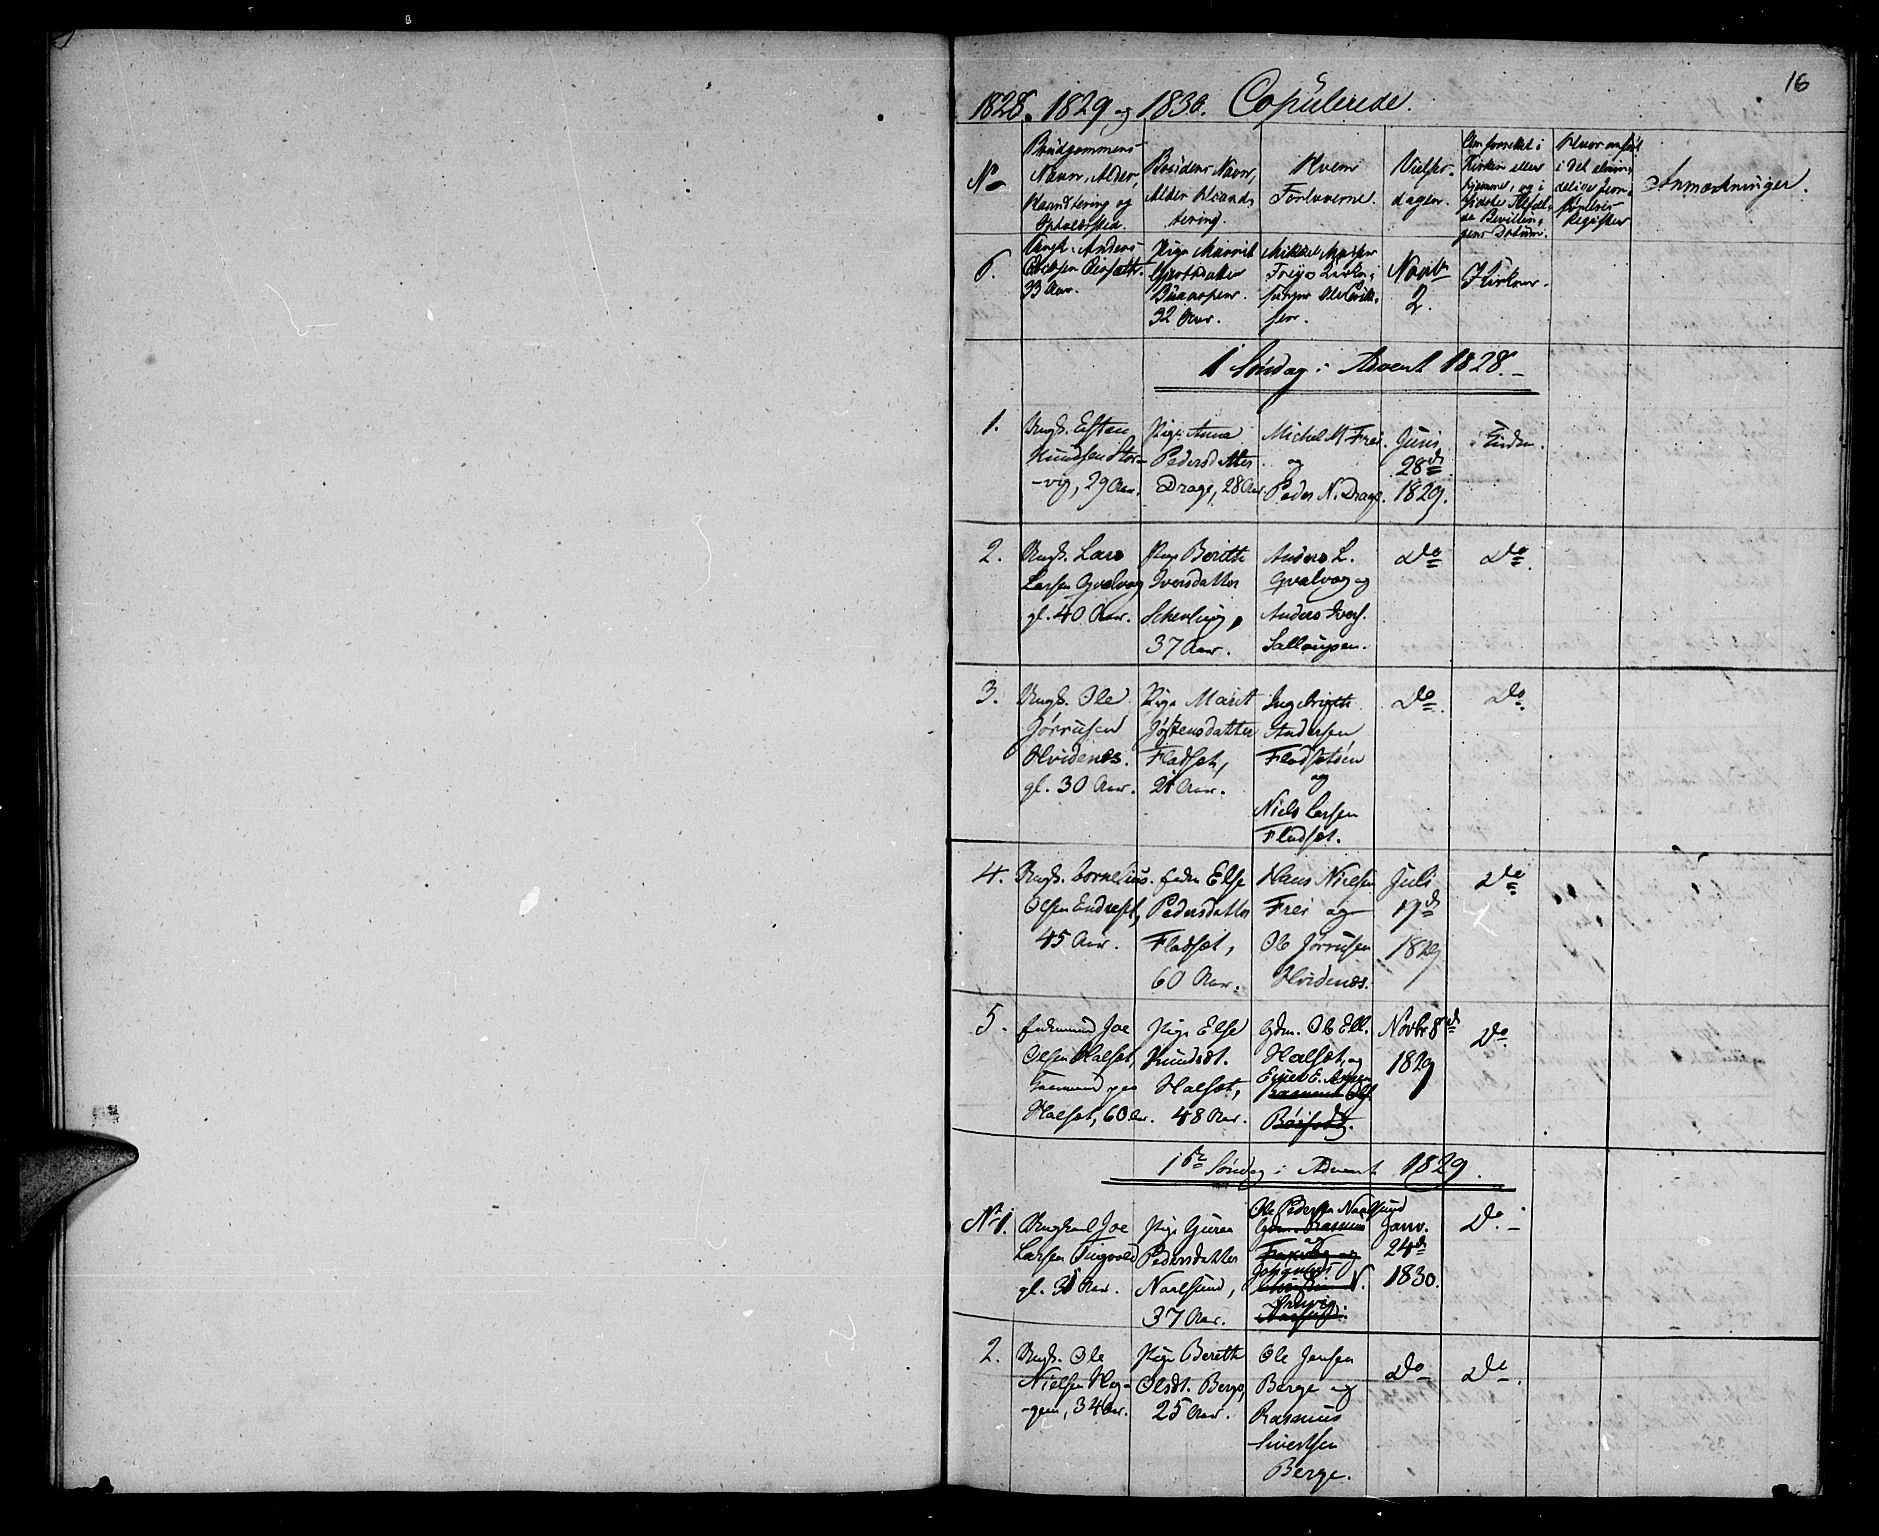 16
1828. 1829 og 1830. Copulerede.
No
Brudgommens Navn, Alder, Haandtering og Opholdsted.
Brudens Navn, Alder Haandtering.
Hvem Forloverne.
Vielsesdagen.
Om forrettet i Kirken eller hjemme, og i sidste Tilfælde Bevillingens Datum.
Hvor anført i det almindelige Jevnførelses Register
Anmærkninger.
6.
Ungk. Anders
33 Aar.
Pige Marrit
32 Aar.
Novbr
2.
Kirken.
1 Søndag i Advent 1828.
1.
Ungk. Esten
Knudsen Stor-
-vig, 29 Aar.
Pige Anne
Pedersdatter
Drage, 28 Aar.
Michel M Frei
og
Peder N. Drage.
Juni
28de
1829.
Kirken.
2.
Ungk. Lars
Larsen Qvalvaag
gl. 40 Aar.
Pige Berithe
Iversdatter
37 Aar.
Anders L.
Qvalvag og
Anders Ivers.
Do
Do
3.
Ungk. Ole
Jørrusen
Hvidenæs.
gl. 30 Aar.
Pige Marit
Jøstensdatter
Fladset,
21 Aar.
Ingebrigth
Andersen
Fladsetøen
og
Niels Larsen
Fladset.
Do
Do
4.
Ungk. Cornelius
Olsen Endreset,
45 Aar.
Enken Else
Pedersdatter
Fladset,
60 Aar.
Hans Nielsen
Frei og
Ole Jørrusen
Hvidenæs.
Juli
17de
1829
Do
5.
Enkemand Joe
Olsen Halset,
Gaarmand paa
Halset, 60 Aar.
Pige Else
Knudsdt.
Halset,
48 Aar.
Gdm. Ole Ell.
Halset og
Rasmus Ols.
Novbr 8de
1829
Do
1ste Søndag i Advent 1829.
No 1.
Ungkarl Joe
Larsen Tingvold
gl. 31 Aar.
Pige Guren
Pedersdatter
Naalsund,
37 Aar.
Ole Pedersen Naalsund
Gdm. Rasmus
og
Janv.
24de
1830.
Do
2.
Ungk. Ole
Nielsen Hag-
-gem, 34 Aar.
Pige Berethe
Olsdt. Berge,
25 Aar.
Ole Jensen
Berge og
Rasmus
Sivertsen
Berge.
Do
Do